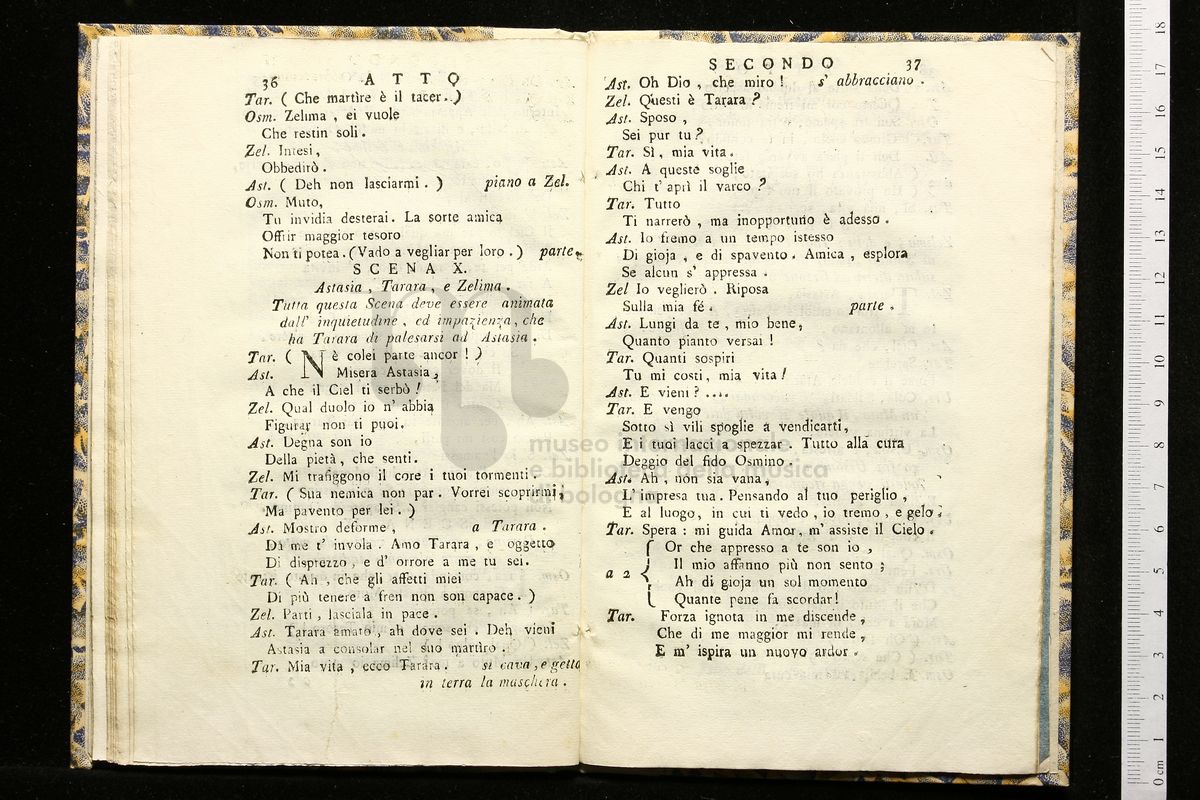 36 ATTO
Tar. ( Che martìre è il tacer. )
Osm. Zelima , ei vuole
Che restin soli .
Zel. Intesi,
Obbedirò .
Ast. ( Deh non lasciarmi . ) piano a Zel.
Osm. Muto,
Tu invidia desterai. La sorte amica
Offrir maggior tesoro
Non ti potea . (Vado a vegliar per loro . ) parte.
SCENA X.
Astasia , Tarara , e Zelima .
Tutta questa Scena deve essere animata
dall' inquietudine , ed impazienza , che
ha Tarara di palesarsi ad Astasia .
Tar. ( NÈ colei parte ancor ! )
Ast. Misera Astasia,
A che il Ciel ti serbò !
Zel. Qual duolo io n' abbia
Figurar non ti puoi.
Ast. Degna son io
Della pietà , che senti.
Zel. Mi trafiggono il core i tuoi tormenti.
Tar. ( Sua nemica non par. Vorrei scoprirmi,
Ma pavento per lei . )
Ast. Mostro deforme , a Tarara .
Di me t' invola . Amo Tarara , e oggetto
Di disprezzo , e d' orrore a me tu sei.
Tar. ( Ah , che gli affetti miei
Di più tenere a fren non son capace. )
Zel. Parti , lasciala in pace .
Ast. Tarara amato , ah dove sei . Deh vieni
Astasia a consolar nel suo martìro .
Tar. Mia vita , ecco Tarara . si cava , e getta
in terra la maschera .
SECONDO 37
Ast. Oh Dio , che miro ! s' abbracciano .
Zel. Questi è Tarara ?
Ast. Sposo ,
Sei pur tu ?
Tar. Sì , mia vita .
Ast. A queste soglie
Chi t' aprì il varco ?
Tar. Tutto
Ti narrerò , ma inopportuno è adesso .
Ast. Io fremo a un tempo istesso
Di gioja , e di spavento . Amica , esplora
Se alcun s' appressa .
Zel Io veglierò . Riposa
Sulla mia fé . parte .
Ast. Lungi da te , mio bene,
Quanto pianto versai !
Tar. Quanti sospiri
Tu mi costi, mia vita !
Ast. E vieni ? ....
Tar. E vengo
Sotto sì vili spoglie a vendicarti,
E i tuoi lacci a spezzar . Tutto alla cura
Deggio del fido Osmino .
Ast. Ah , non sia vana,
L' impresa tua . Pensando al tuo periglio ,
E al luogo, in cui ti vedo , io tremo , e gelo .
Tar. Spera : mi guida Amor, m' assiste il Cielo .
a 2 { Or che appresso a te son io ,
Il mio affanno più non sento ;
Ah di gioja un sol momento
Quante pene fa scordar !
Tar. Forza ignota in me discende,
Che di me maggior mi rende,
E m' ispira un nuovo ardor .
museo internazionale
e biblioteca della musica
di bologna
18
17
16
15
14
13
12
11
10
9
8
7
6
5
4
3
2
1
0 cm